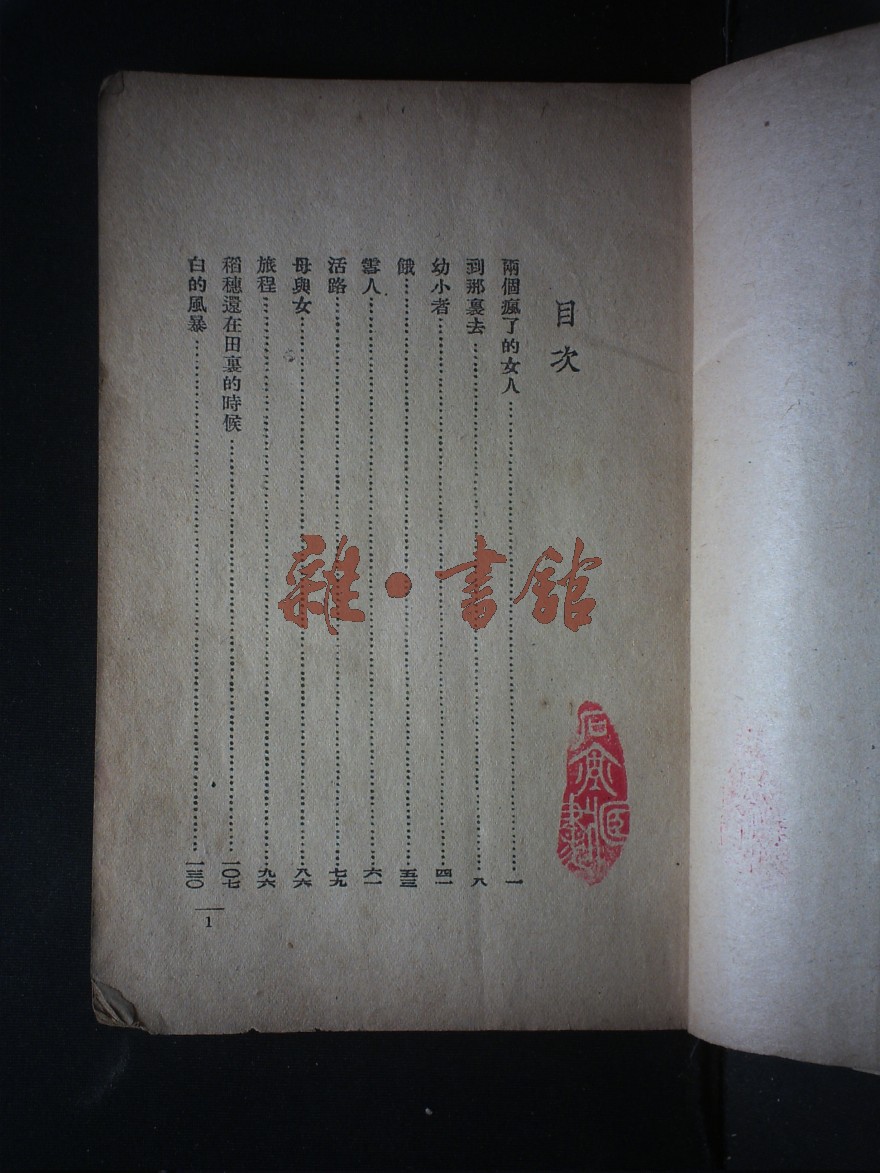 目次
兩個瘋了的女人……一
到那裏去……八
幼小者……四一
餓……五三
人……六一
活路……七九
母與女……八六
旅程……九六
稻穗還在田裏的時候……一〇七
白的風暴……一三〇
1
雜・書館